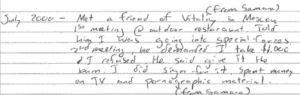 (from Samara)
July 2000 - Met a friend of Vitaliy in Moscow
1st meeting @ outdoor restaurant. Told
him I was going into special forces
2nd meeting, he demanded I take $1,000
& I refused. He said give it the
bum. I did sign for it spent money
on TV and pornographic material.
(from Samara)